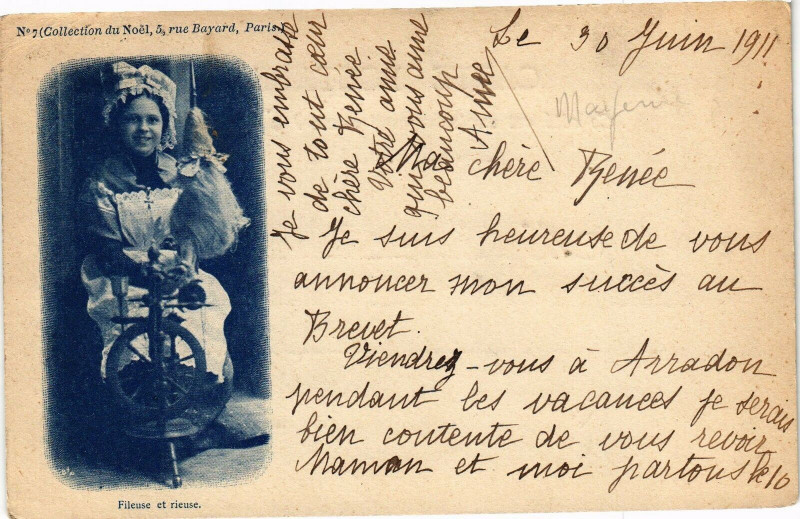 Nº 7 (Collection du Noël, 5, rue Bayard, Paris.)
Le 30 Juin 1911
Ma chère Renée
Je suis heureuse de vous
annoncer mon succès au
Brevet.
Viendrez-vous à Arradon
pendant les vacances je serais
bien contente de vous revoir
Maman et moi partons le 10
Je vous embrasse
de tout cœur
chère Renée
Votre amie
qui vous aime
beaucoup
Fileuse et rieuse.